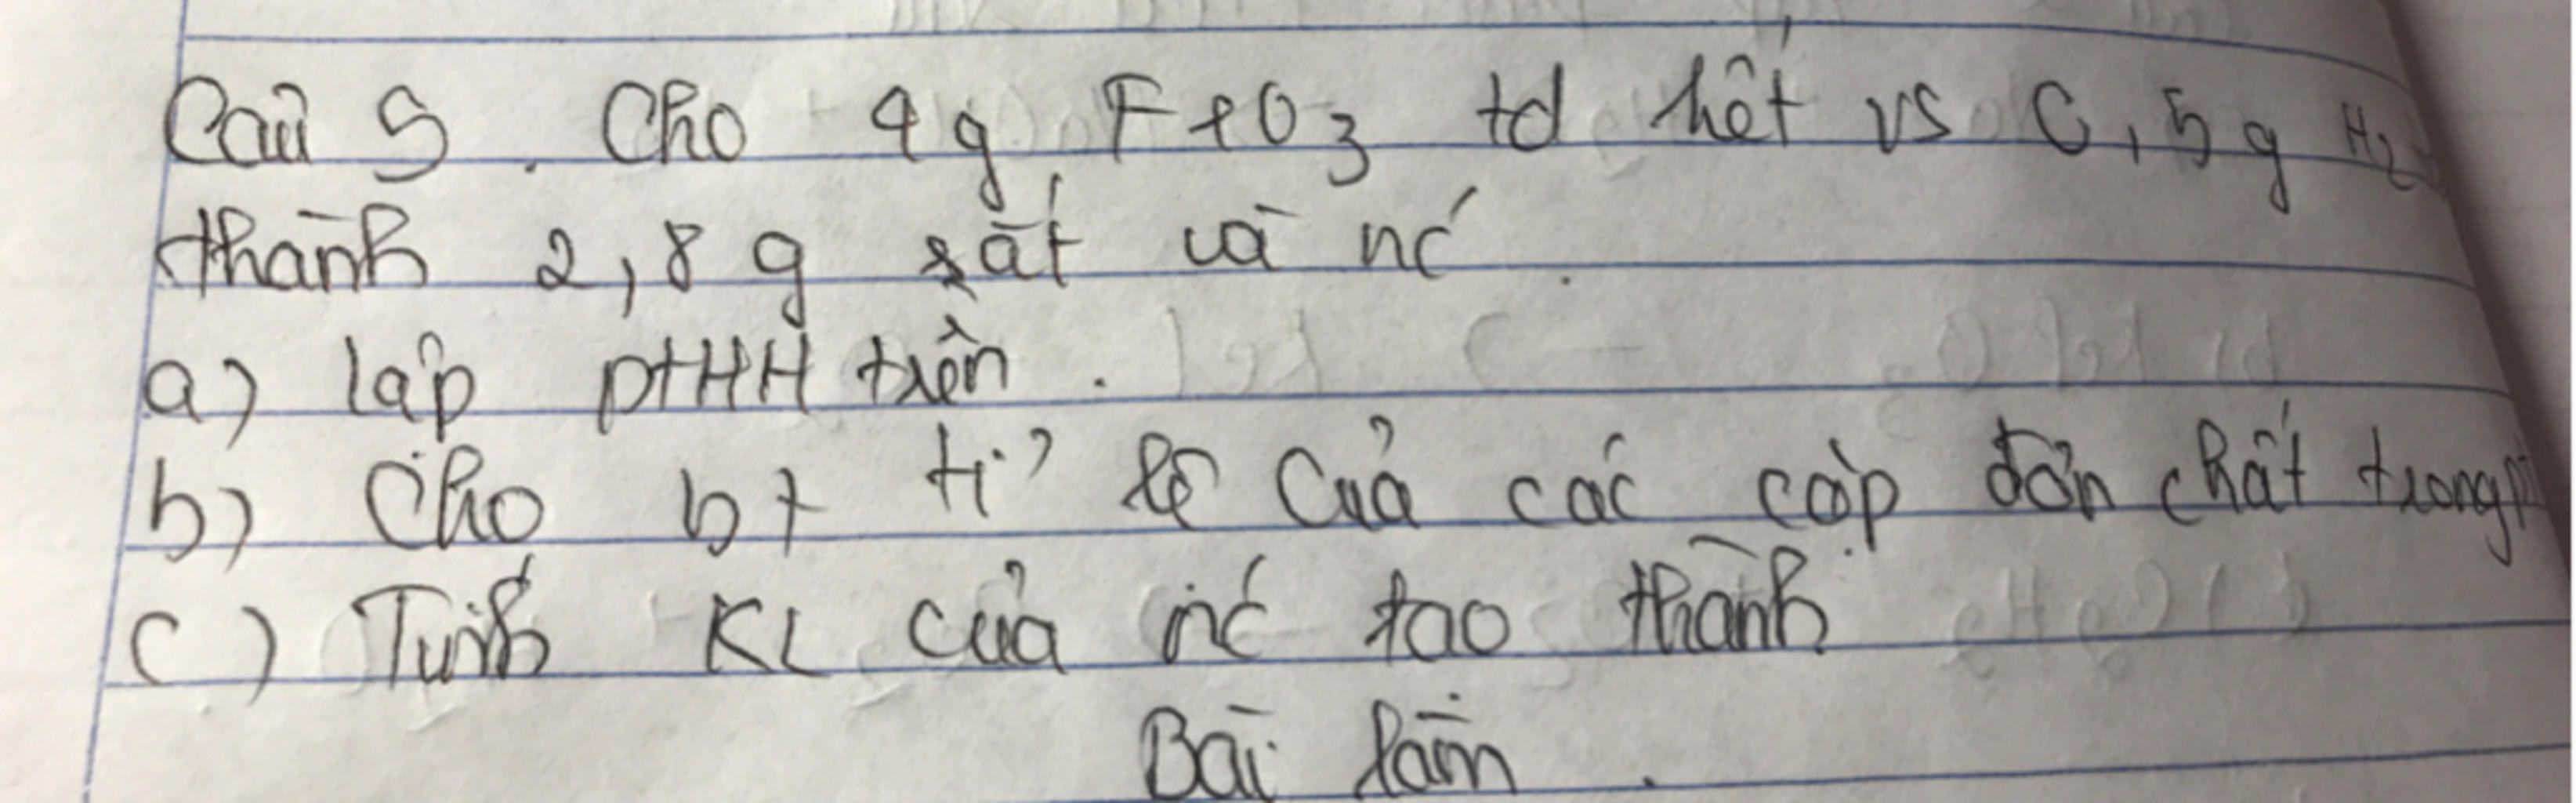 Câu 5. Cho 4g FeO3 td hết vs 0,5g H2
thành 2,8g sắt và nć.
a) lập ptHH trên.
b) Cho bt tỉ lệ của các cặp đơn chất trong
c) Tính KL của nć tạo thành
Bài làm.